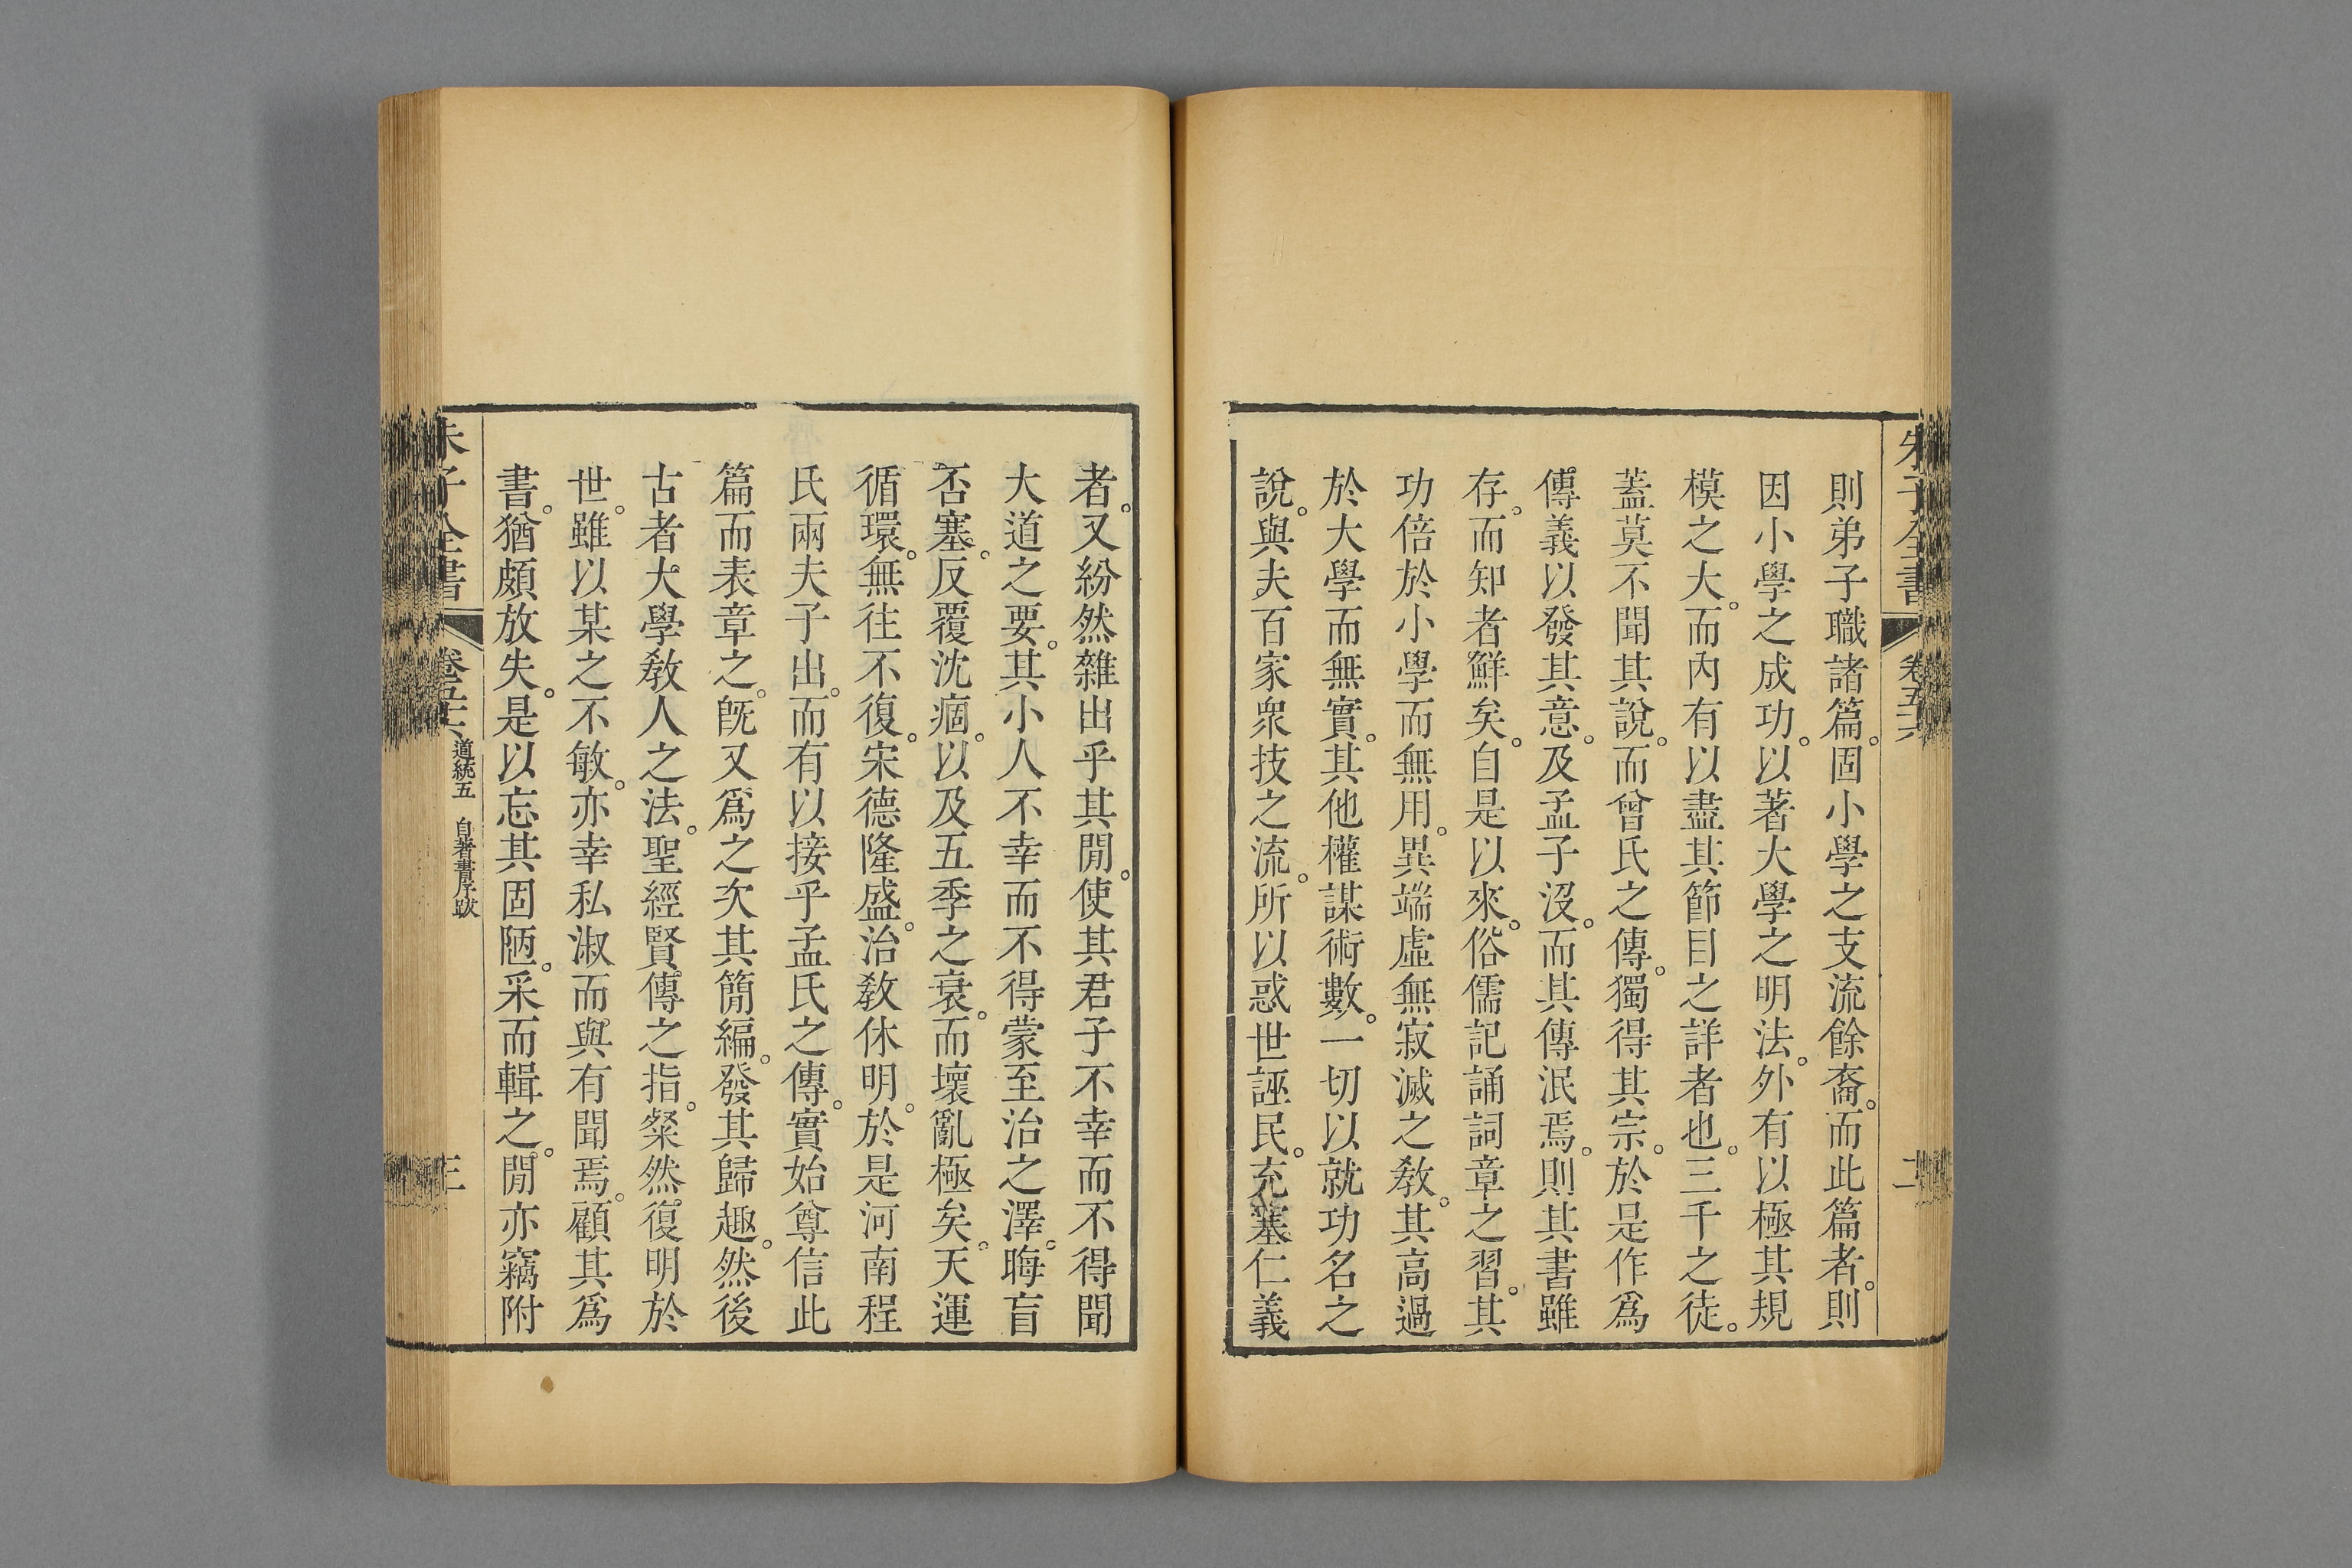 朱子全書 卷五十六 二
則弟子職諸篇。固小學之支流餘裔。而此篇者。則
因小學之成功。以著大學之明法。外有以極其規
模之大。而內有以盡其節目之詳者也。三千之徒。
蓋莫不聞其說。而曾氏之傳。獨得其宗。於是作爲
傳義以發其意。及孟子沒。而其傳泯焉。則其書雖
存。而知者鮮矣。自是以來。俗儒記誦詞章之習。其
功倍於小學而無用。異端虛無寂滅之敎。其高過
於大學而無實。其他權謀術數。一切以就功名之
說。與夫百家眾技之流。所以惑世誣民。充塞仁義
者。又紛然雜出乎其閒。使其君子不幸而不得聞
大道之要。其小人不幸而不得蒙至治之澤。晦盲
否塞。反覆沈痼。以及五季之衰。而壞亂極矣。天運
循環。無往不復。宋德隆盛。治敎休明。於是河南程
氏兩夫子出。而有以接乎孟氏之傳。實始尊信此
篇而表章之。旣又爲之次其簡編。發其歸趣。然後
古者大學敎人之法。聖經賢傳之指。粲然復明於
世。雖以某之不敏。亦幸私淑而與有聞焉。顧其爲
書。猶頗放失。是以忘其固陋。采而輯之。閒亦竊附
朱子全書 卷五十六 道統五 自著書序跋 三